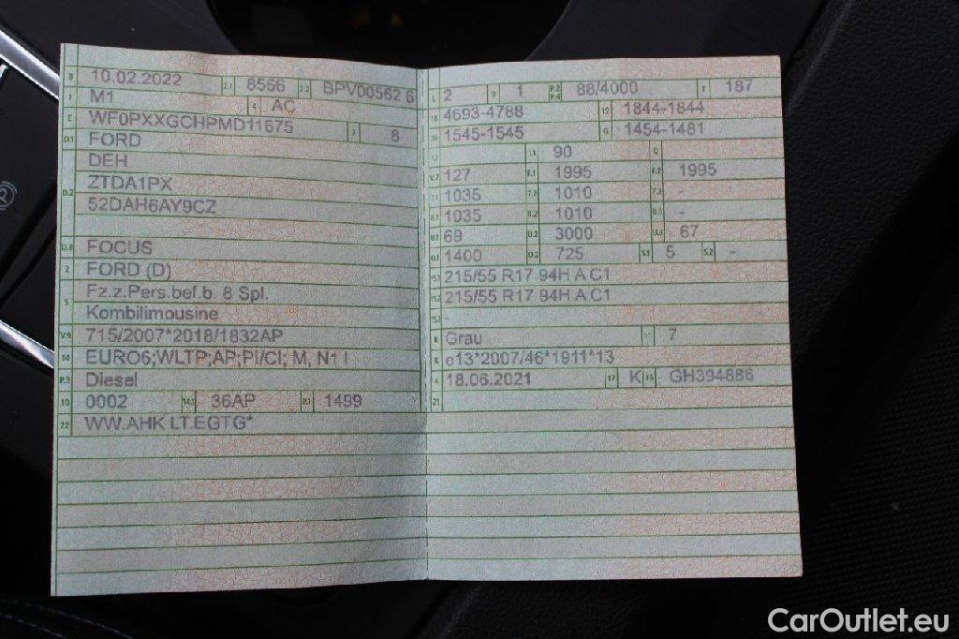 B 10.02.2022 2.1 8566 2.2 BPV00562 6
J M1 4 AC
E WF0PXXGCHPMD11675 3 8
D.1 FORD
DEH
D.2 ZTDA1PX
52DAH6AY9CZ
D.3 FOCUS
2 FORD (D)
5 Fz.z.Pers.bef.b. 8 Spl.
Kombilimousine
V.9 715/2007*2018/1832AP
14 EURO6;WLTP;AP;PI/CI; M, N1 I
P.3 Diesel
10 0002 14.1 36AP P.1 1499
22 WW.AHK LT.EGTG*
L 2 9 1 P.2 P.4 88/4000 T 187
18 4693-4788 19 1844-1844
20 1545-1545 G 1454-1481
12 13 90 Q
V.7 127 F.1 1995 F.2 1995
7.1 1035 7.2 1010 7.3 -
8.1 1035 8.2 1010 8.3 -
U.1 69 U.2 3000 U.3 67
O.1 1400 O.2 725 S.1 5 S.2 -
15.1 215/55 R17 94H A C1
15.2 215/55 R17 94H A C1
15.3 -
R Grau 11 7
K e13*2007/46*1911*13
6 18.06.2021 17 K 16 GH394886
21
CarOutlet.eu